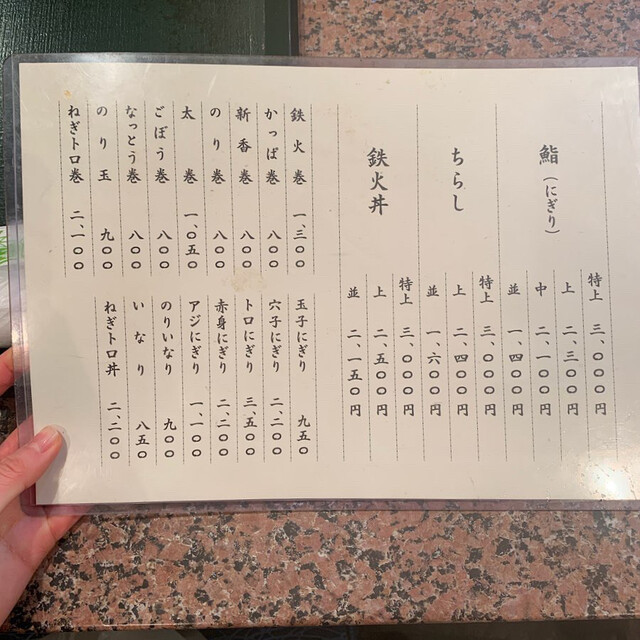 鮨（にぎり）
特上 三、〇〇〇円
上 二、三〇〇円
中 二、一〇〇円
並 一、四〇〇円
ちらし
特上 三、〇〇〇円
上 二、四〇〇円
並 一、六〇〇円
鉄火丼
特上 三、〇〇〇円
上 二、五〇〇円
並 二、一五〇円
鉄火巻 一、三〇〇
かっぱ巻 八〇〇
新香巻 八〇〇
のり巻 八〇〇
太巻 一、〇五〇
ごぼう巻 八〇〇
なっとう巻 八〇〇
のり玉 九〇〇
ねぎトロ巻 二、一〇〇
玉子にぎり 九五〇
穴子にぎり 二、二〇〇
トロにぎり 三、五〇〇
赤身にぎり 二、二〇〇
アジにぎり 一、一〇〇
のりいなり 九〇〇
いなり 八五〇
ねぎトロ丼 二、二〇〇